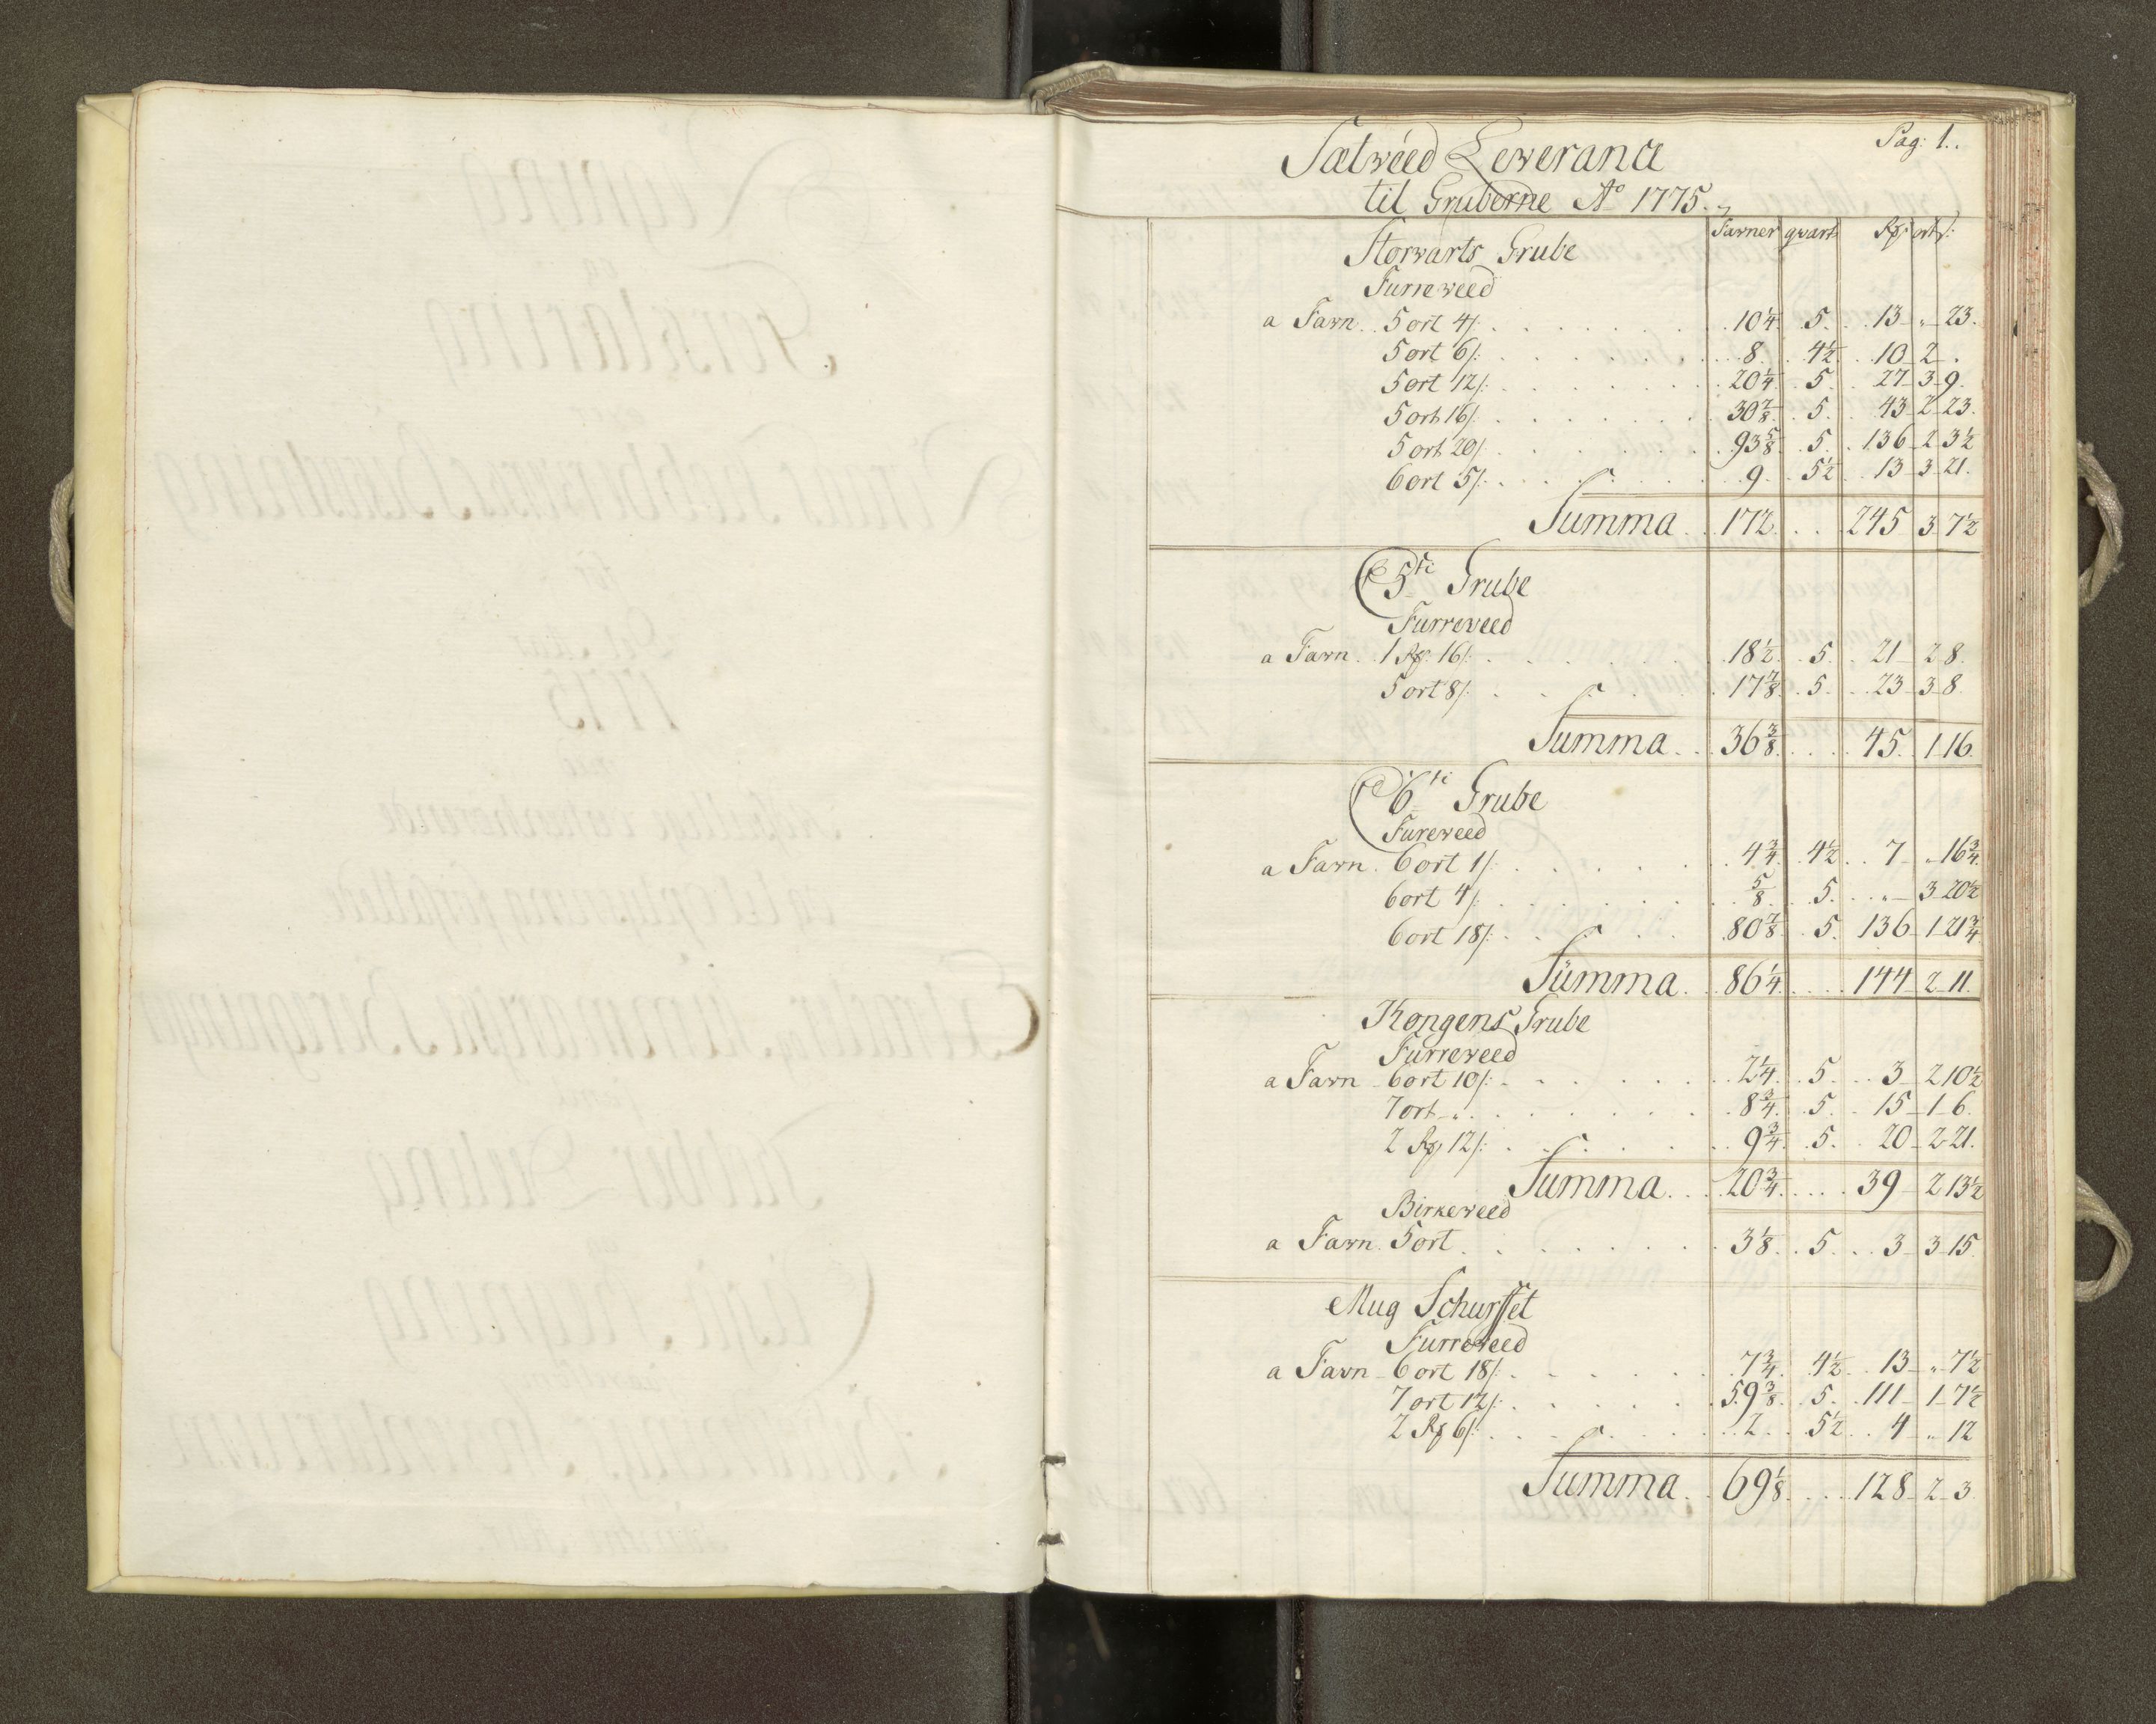 Pag: 1..
Sætwéed Leverance
til Gruberne Aº 1775.
Favner qvart Rdr ort s:
Storvarts Grube
Furreveed
a Favn.. 5 ort 4s: 10¼ 5. 13 „ 23.
5 ort 6s: 8. 4½ 10 2 .
5 ort 12s: 20¼ 5. 27 3 9.
5 ort 16s: 30⅞ 5. 43 2 23.
5 ort 20s: 93⅝ 5. 136 2 3½
6 ort 5s: 9 5½ 13 3 21.
Summa 172 245 3 7½
5te Grube
Furreveed
a Favn. 1 Rdr 16s: 18½ 5. 21 2 8.
5 ort 8s: 17⅞ 5. 23 3 8.
Summa 36⅜ 45. 1 16.
6te Grube
Fureveed
a Favn. 6 ort 1s: 4¾ 4½ 7 „ 16¾
6 ort 4s: ⅝ 5. „ 3 20½
6 ort 18s: 80⅞ 5. 136 1 21¾
Summa 86¼ 144 2 11.
Kongens Grube
Furreveed
a Favn 6 ort 10s: 2¼ 5. 3 2 10½
7 ort „ 8¾ 5. 15 1 6.
2 Rdr 12s: 9¾ 5. 20 2 21.
Summa 20¾ 39 2 13½
Birkeveed
a Favn. 5 ort 3⅛ 5 3 3 15.
Mug Schurffet
Furreveed
a Favn 6 ort 18s: 7¾ 4½ 13 „ 7½
7 ort 12s: 59⅜ 5. 111 1 7½
2 Rdr 6s: 2 5½ 4 „ 12
Summa 69⅛ 128 2 3